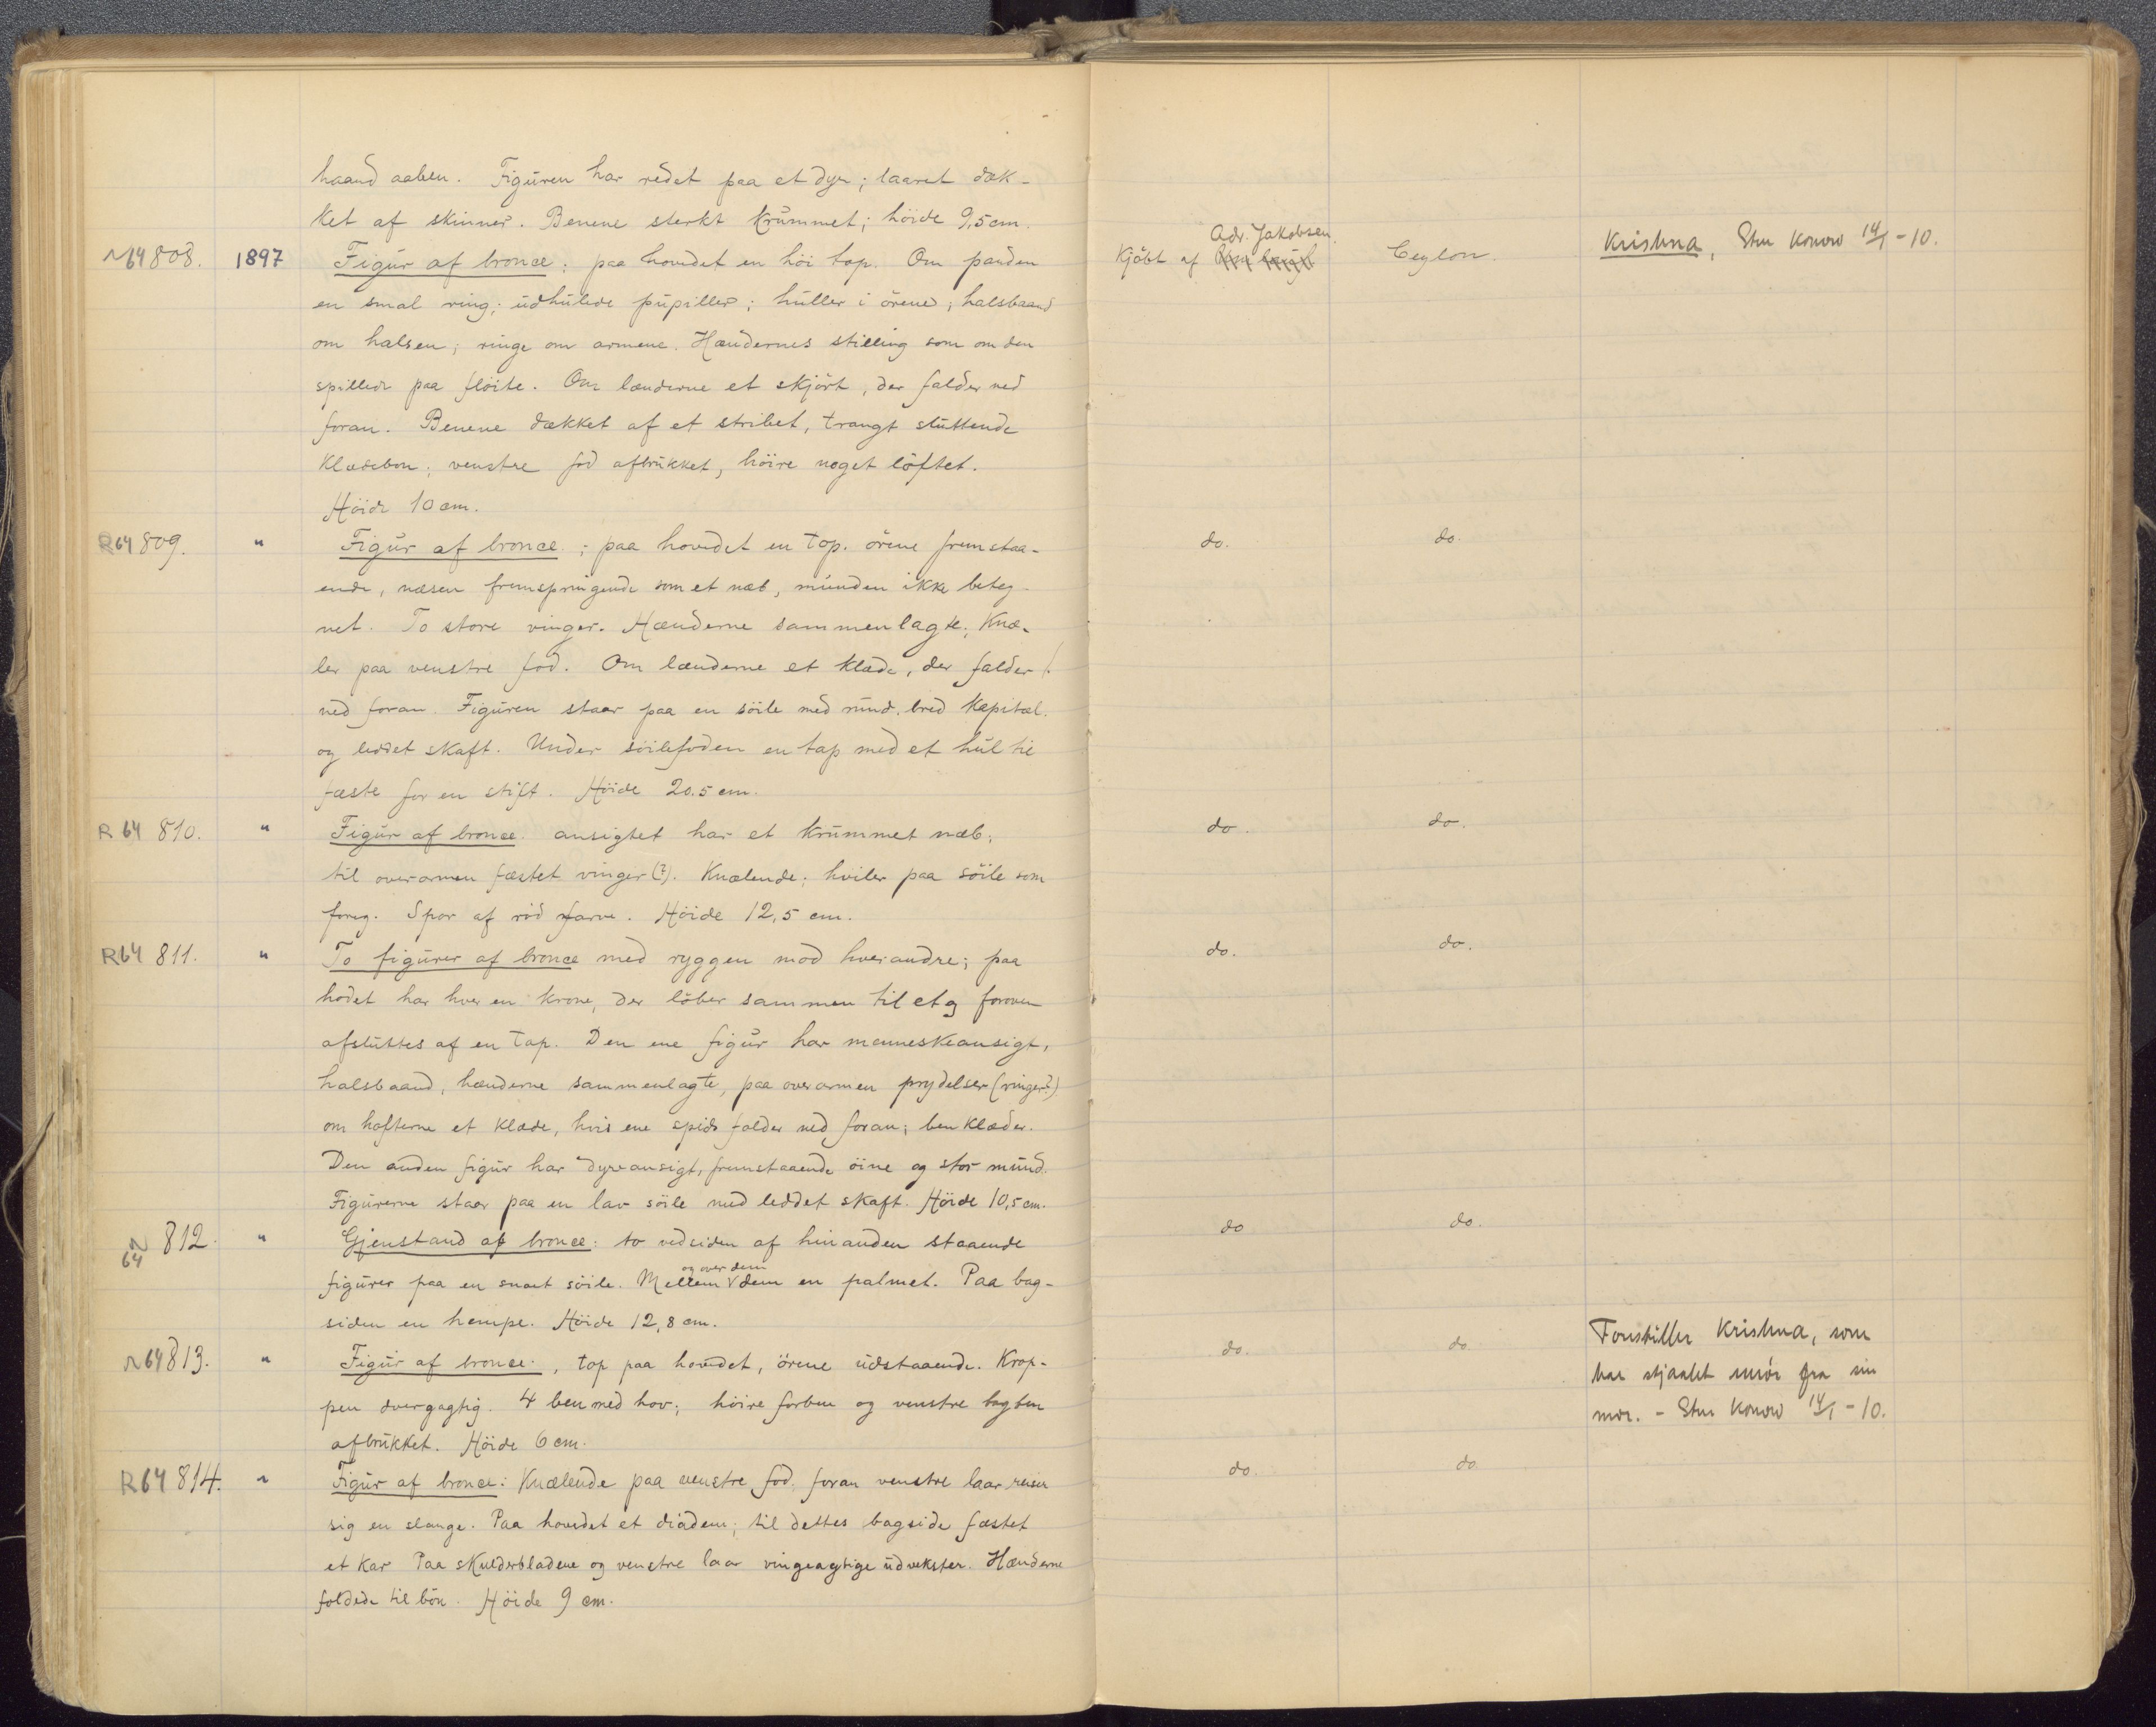 haand aaben. Figuren har redet paa et dyr; laaret dæk-
ket af skinner. Benene sterkt krummet; höide 9,5 cm.
R64 808. 1897 Figur af bronce; paa hovedet en höi top. Om panden
en smal ring; udhulede pupiller; huller i örene; halsbaand
om halsen; ringe om armene. Hændernes stilling som om den
spillede paa flöite. Om lænderne et skjört, der falder ned
foran. Benene dækket af et stribet, trangt sluttende
klædebon; venstre fod afbrukket, höire noget löftet.
Höide 10 cm.
Adr. Jakobsen.
Kjöbt af
Ceylon.
Krishna, Sten Konow 14/1 - 10.
R64 809. " Figur af bronce; paa hovedet en top. örene fremstaa-
ende, næsen fremspringende som et næb, munden ikke beteg-
net. To store vinger. Hænderne sammenlagte; Knæ-
ler paa venstre fod. Om lænderne et klæde, der falder
ned foran. Figuren staar paa en söile med rund, bred kapitæl.
og leddet skaft. Under söilefoden en tap med et hul til
fæste for en stift. Höide 20.5 cm.
do. do.
R64 810. " Figur af bronce. ansigtet har et krummet næb;
til overarmen fæstet vinger (?). Knælende; hviler paa söile som
foreg. Spor af röd farve. Höide 12,5 cm.
do. do.
R64 811. " To figurer af bronce med ryggen mod hverandre; paa
hodet har hver en krone, der löber sammen til et og foroven
afsluttes af en top. Den ene figur har menneskeansigt,
halsbaand, hænderne sammenlagte, paa overarmen prydelser (vinger?)
om hofterne et klæde, hvis ene spids falder ned foran; benklæder.
Den anden figur har dyreansigt, fremstaaende öine og stor mund.
Figurerne staar paa en lav söile med leddet skaft. Höide 10,5 cm.
do. do.
R64 812. " Gjenstand af bronce: to vedsiden af hinanden staaende
figurer paa en snoet söile. Mellem og over dem dem en palmet. Paa bag-
siden en hempe. Höide 12,8 cm.
do do.
R64 813. " Figur af bronce, top paa hovedet, örene udstaaende. Krop-
pen dvergagtig. 4 ben med hov; höire forben og venstre bagben
afbrukket. Höide 6 cm.
do. do.
Forestiller Krishna, som
har stjaalet smör fra sin
mor. - Sten Konow 14/1 - 10.
R64 814. " Figur af bronce: Knælende paa venstre fod, foran venstre laar reiser
sig en slange. Paa hovedet et diadem; til dettes bagside fæstet
et kar Paa skulderbladene og venstre laar vingeagtige udvekster. Hænderne
foldede til bön. Höide 9 cm.
do. do.